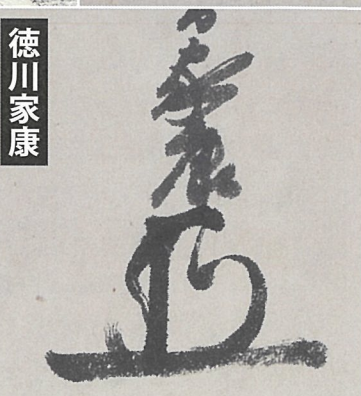 徳川家康
家康